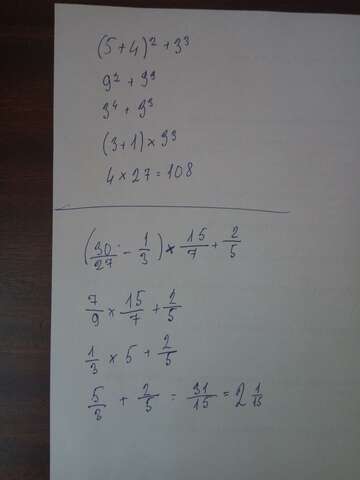 (5+4)² + 3³
9² + 3³
3⁴ + 3³
(3+1) × 3³
4 × 27 = 108
(30/27 - 1/3) × 15/7 + 2/5
7/9 × 15/7 + 2/5
1/3 × 5 + 2/5
5/3 + 2/5 = 31/15 = 2 1/15